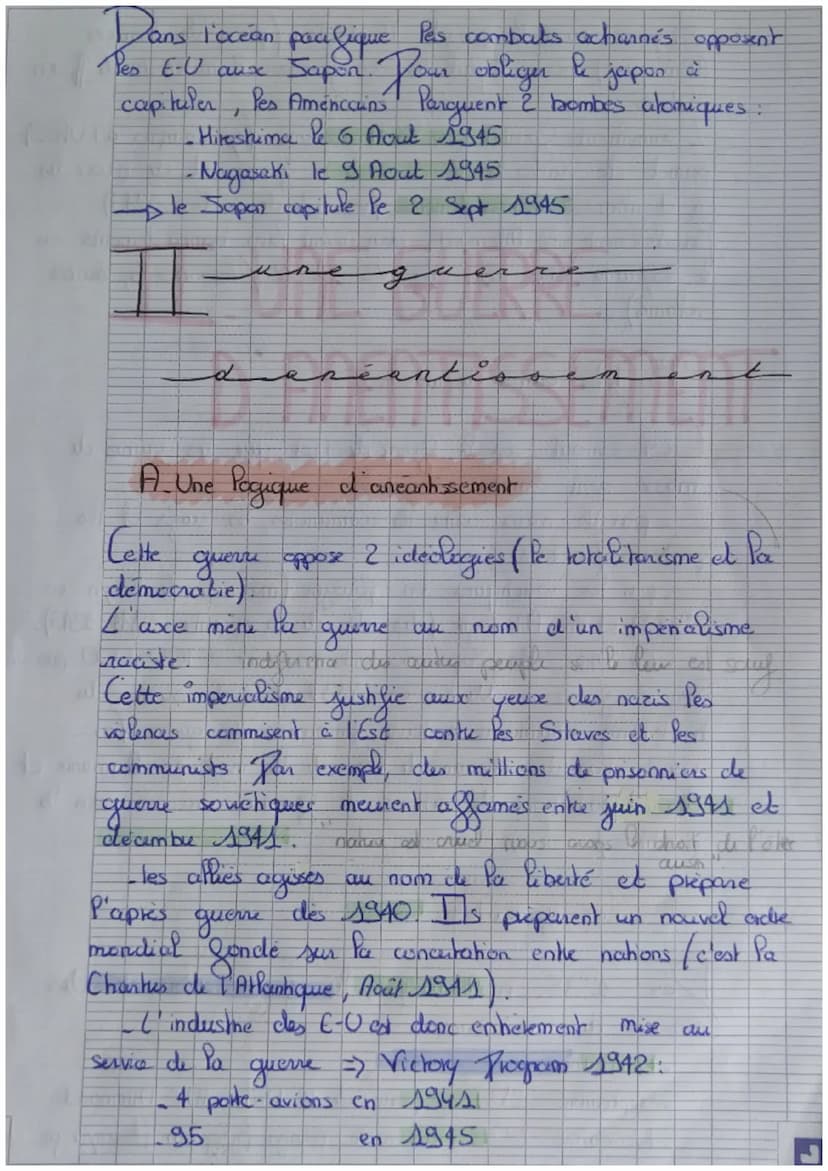 Dans l'océan pacifique les combats acharnés opposent
les E-U aux Japon. Pour obliger le japon à
capituler, les Américains larguent 2 bombes atomiques :
- Hiroshima le 6 Aout 1945
- Nagasaki le 9 Aout 1945
→ le Japon capitule le 2 Sept 1945
II une guerre
d'anéantissement
A_Une logique d'anéantissement
Cette guerre oppose 2 idéologies (le totalitarisme et la
démocratie).
L'axe mène la guerre au nom d'un impérialisme
raciste. indifférence des autres peuple
Cette impérialisme justifie aux yeux des nazis les
violences commisent à l'Est contre les Slaves et les
communists. Par exemple, des millions de prisonniers de
guerre soviétiques meurent affamés entre juin 1941 et
décembre 1941. "nature est cruel nous avons le droit de l'être
aussi"
- les alliés agisses au nom de la liberté et prépare
l'après guerre dès 1940. Ils préparent un nouvel ordre
mondial fondé sur la concertation entre nations (c'est la
Chartes de l'Atlantique, Août 1941).
- L'industrie des E-U est donc entièrement mise au
service de la guerre => Victory Program 1942 :
- 4 porte-avions en 1941
- 95 en 1945